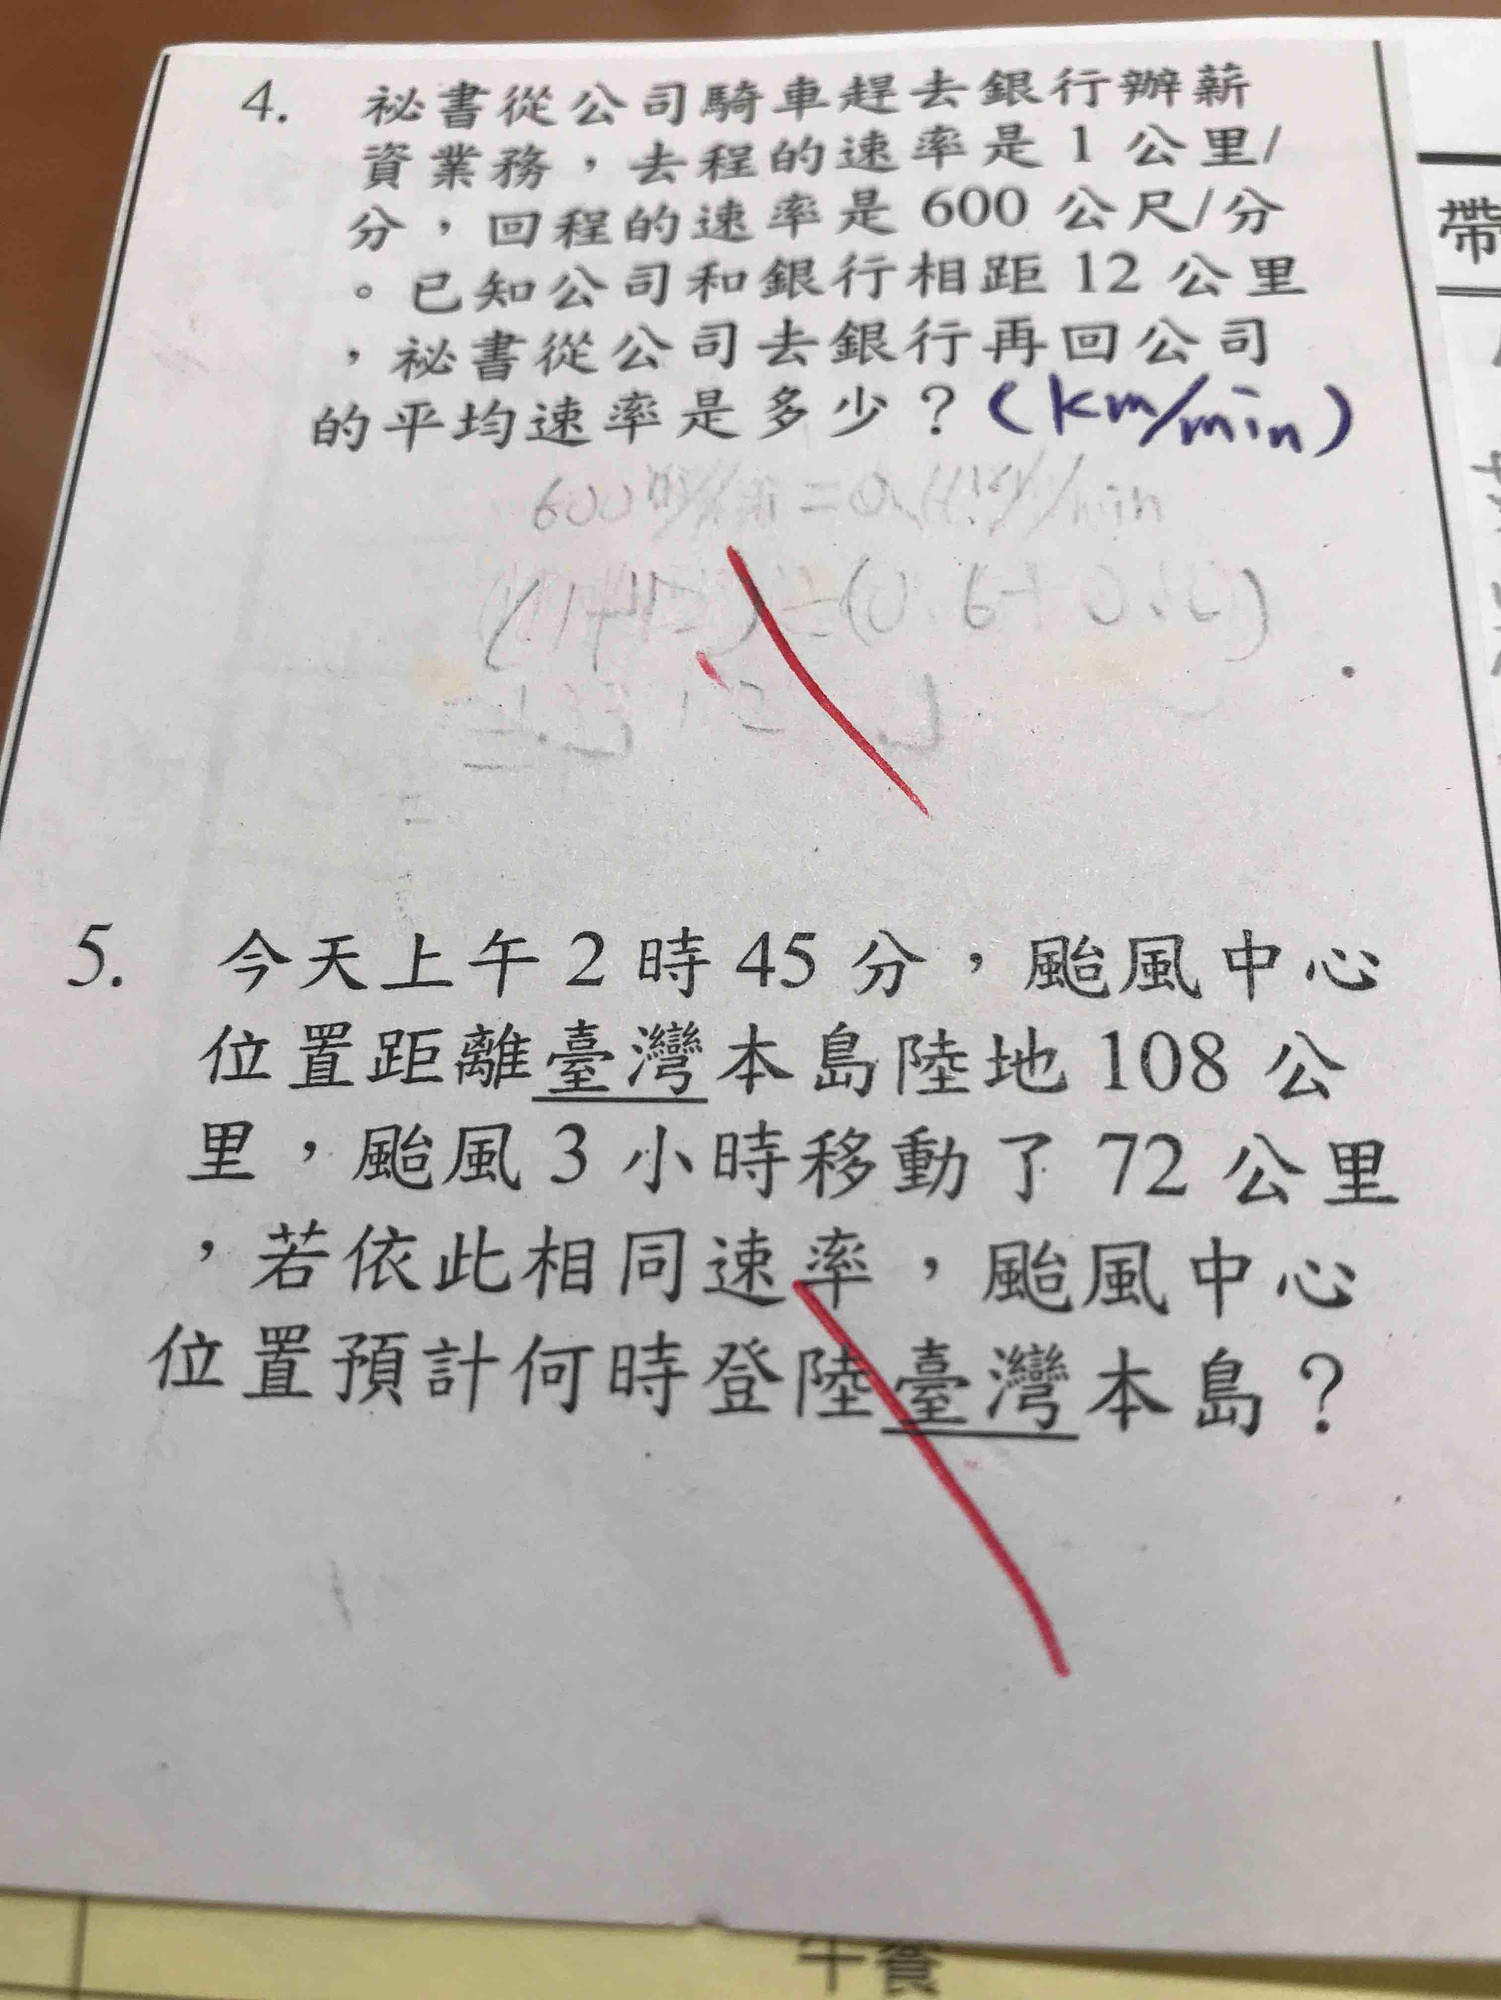 4. 祕書從公司騎車趕去銀行辦薪
資業務，去程的速率是 1 公里/
分，回程的速率是 600 公尺/分
。已知公司和銀行相距 12 公里
，祕書從公司去銀行再回公司
的平均速率是多少？(km/min)
5. 今天上午 2 時 45 分，颱風中心
位置距離臺灣本島陸地 108 公
里，颱風 3 小時移動了 72 公里
，若依此相同速率，颱風中心
位置預計何時登陸臺灣本島？
帶
午餐